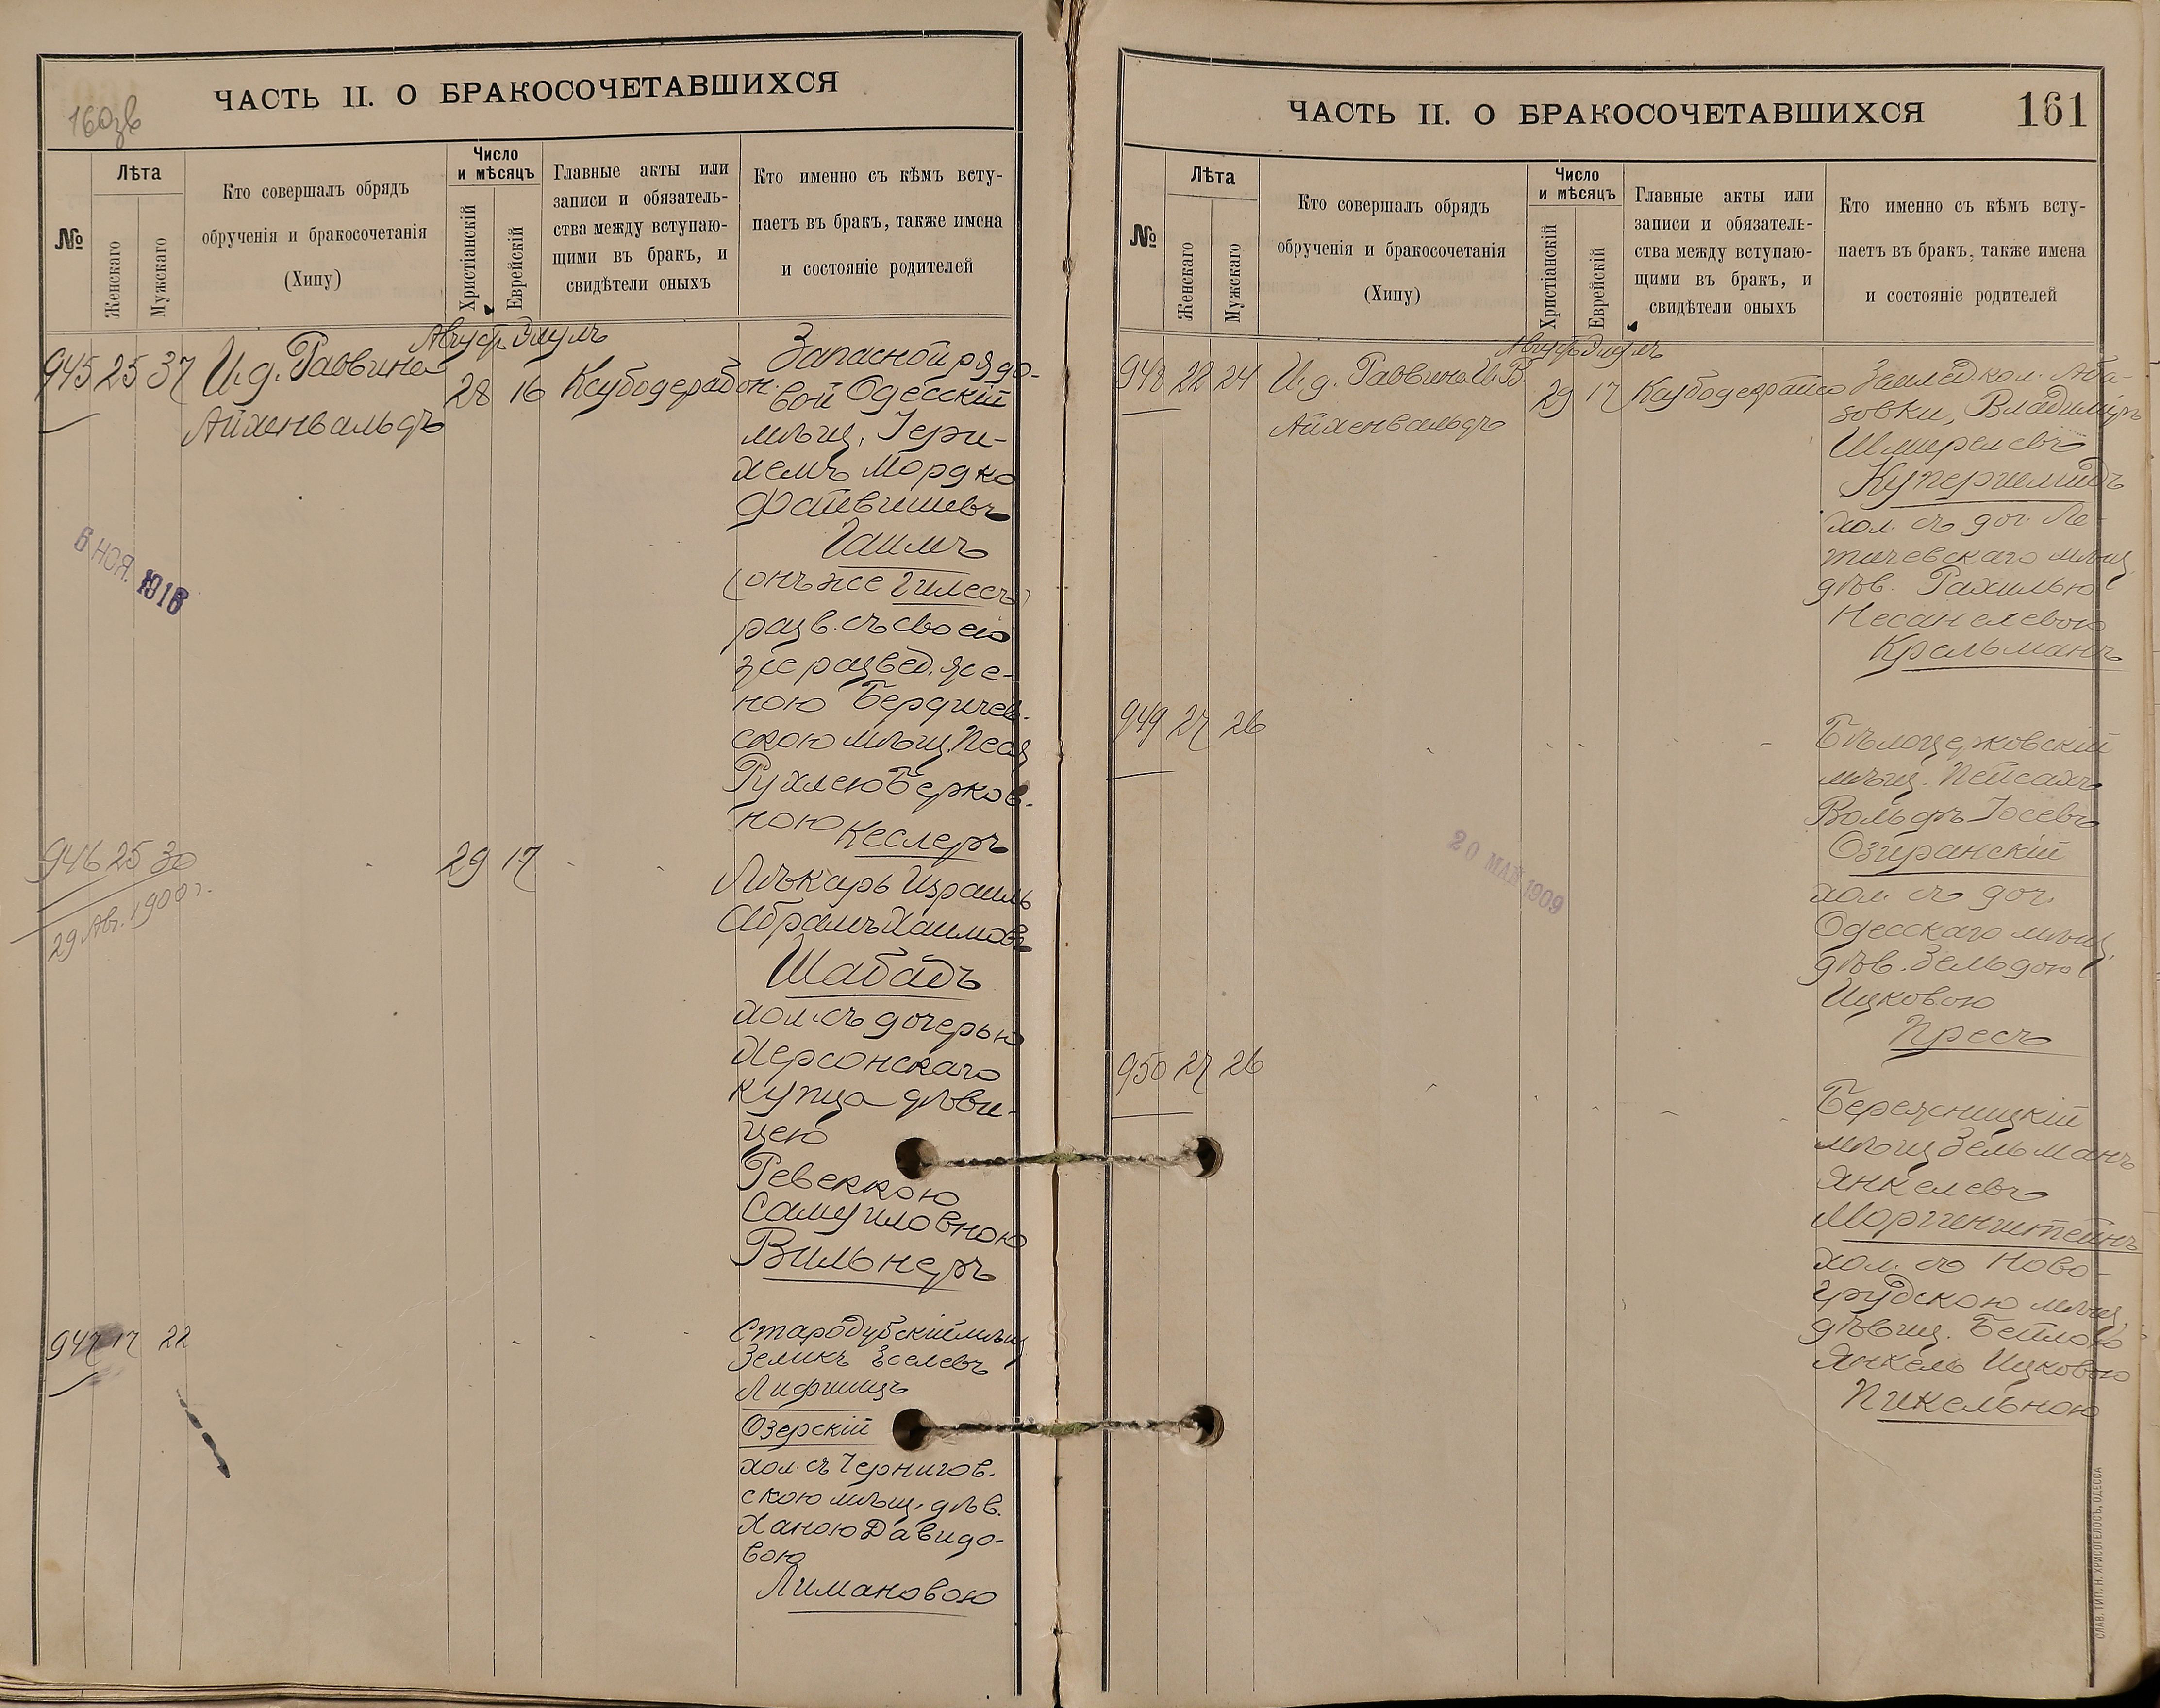 160об
ЧАСТЬ II. О БРАКОСОЧЕТАВШИХСЯ
№
Лѣта
Женскаго
Мужскаго
Кто совершалъ обрядъ
обрученія и бракосочетанія
(Хипу)
Число
и мѣсяцъ
Христіанскій
Еврейскій
Главные акты или
записи и обязатель-
ства между вступаю-
щими въ бракъ, и
свидѣтели оныхъ
Кто именно съ кѣмъ всту-
паетъ въ бракъ, также имена
и состояніе родителей
Августъ Элулъ
945 25 37 И. д. Раввина 28 16
Айхенвальдъ
Запасной рядо-
вой Одесскій
мѣщ. Іери-
хемъ Мордко
Файвишевъ
Гаимъ
(онъ же Гилесъ)
разв. съ своею
же развед. же-
ною Бердичев-
скою мѣщ. Песя
Рухлею Берков-
ною Кеслеръ
5 НОЯ. 1916
946 25 30 29 17
29 Авг. 1900 г.
Лѣкарь Израиль
Абрамъ Хаимовъ
Шабадъ
хол. съ дочерью
Херсонскаго
купца дѣви-
цею
Ревеккою
Самуиловною
Вильнеръ
947 17 22
Стародубскій мѣщ
Зеликъ Еселевъ
Лифшицъ
Озерскій
хол. съ Чернигов-
скою мѣщ. дѣв.
Ханою Давидо-
вою
Лимановою
ЧАСТЬ II. О БРАКОСОЧЕТАВШИХСЯ
161
№
Лѣта
Женскаго
Мужскаго
Кто совершалъ обрядъ
обрученія и бракосочетанія
(Хипу)
Число
и мѣсяцъ
Христіанскій
Еврейскій
Главные акты или
записи и обязатель-
ства между вступаю-
щими въ бракъ, и
свидѣтели оныхъ
Кто именно съ кѣмъ всту-
паетъ въ бракъ, также имена
и состояніе родителей
Августъ Элулъ
948 22 24 И. д. Раввина 29 17
Айхенвальдъ
Землед. кол. Аба-
зовки, Владиміръ
Шмерелевъ
Купершмидъ
хол. съ доч. Ле-
тичевскаго мѣщ.
дѣв. Рахилью
Несанелевою
Крельманъ
949 27 26
Бѣлоцерковскій
мѣщ. Пейсахъ
Вольфъ Іосевъ
Озиранскій
хол. съ доч.
Одесскаго мѣщ.
дѣв. Зельдою
Ицковою
Пресъ
20 МАЯ 1909
950 27 26
Бережницкій
мѣщ Зельманъ
Янкелевъ
Моргенштейнъ
хол. съ Ново-
грудскою мѣщ.
дѣвиц. Бейлою
Янкель Ицковою
Пикельною
СЛАВ. ТИП. Н. ХРИСОГЕЛОСЪ, ОДЕССА